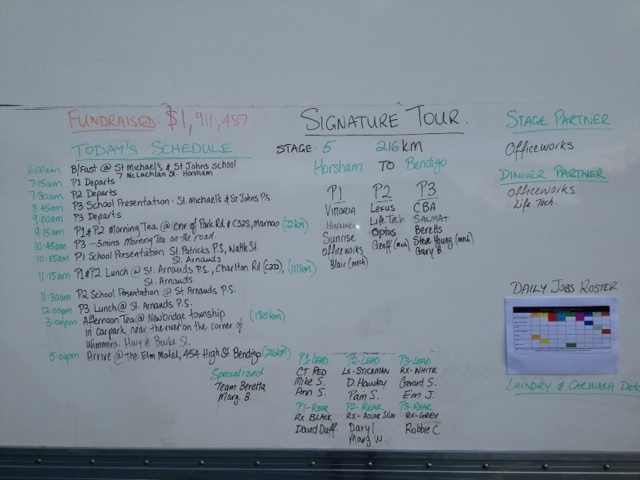 FUNDRAISED: $1,911,487
SIGNATURE TOUR.
STAGE 5 216 km
Horsham TO Bendigo
TODAY'S SCHEDULE
6:00am B/Fast @ St Michael's & St Johns School
7 McLachlan St. Horsham
7:15am P1 Departs
7:30am P2 Departs
8:45am P3 School Presentation: St. Michael's & St Johns P.S.
9:00am P3 Departs
9:15am P1 & P2 Morning Tea @ cnr of Park Rd & C238, marnoo (72km)
10:45am P3 - 5mins Morning Tea on the road
10:55am P1 School Presentation St. Patricks P.S, Nattle St.
St. Arnauds
11:15am P1 & P2 Lunch @ St. Arnauds P.S., Charlton Rd (C272), (111km)
St. Arnauds
11:30am P2 School Presentation @ St Arnauds P.S.
12:05pm P3 Lunch @ St. Arnauds P.S.
3:00pm Afternoon Tea @ Newbridge township (180km)
in carpark near the river on the corner of
Wimmera Hwy & Burke St.
5:00pm Arrive @ the Elm Motel, 454 High St Bendigo (216km)
P1
Vittoria
Huawei
Sunrise
Officeworks
Blair (mech)
P2
Lexus
Life Tech
Optus
Geoff (mech)
P3
CBA
SALMAT
Beretts
Steve Young (mech)
Gary B.
STAGE PARTNER
Officeworks
DINNER PARTNER
Officeworks
Life Tech.
DAILY JOBS ROSTER
LAUNDRY & CARWASH
Specialized
Team Beretta
Marg B.
P1-LEAD
CT RED
Mike S.
Ann S.
P2-LEAD
LX-STICKMAN
D. Hawksy
Pam S.
P3-LEAD
RX-WHITE
Gerard S.
Em J.
P1-REAR
RX BLAIR
David Duff
P2-REAR
Daryl
Marg N.
P3-REAR
RX-GREY
Robbie C.